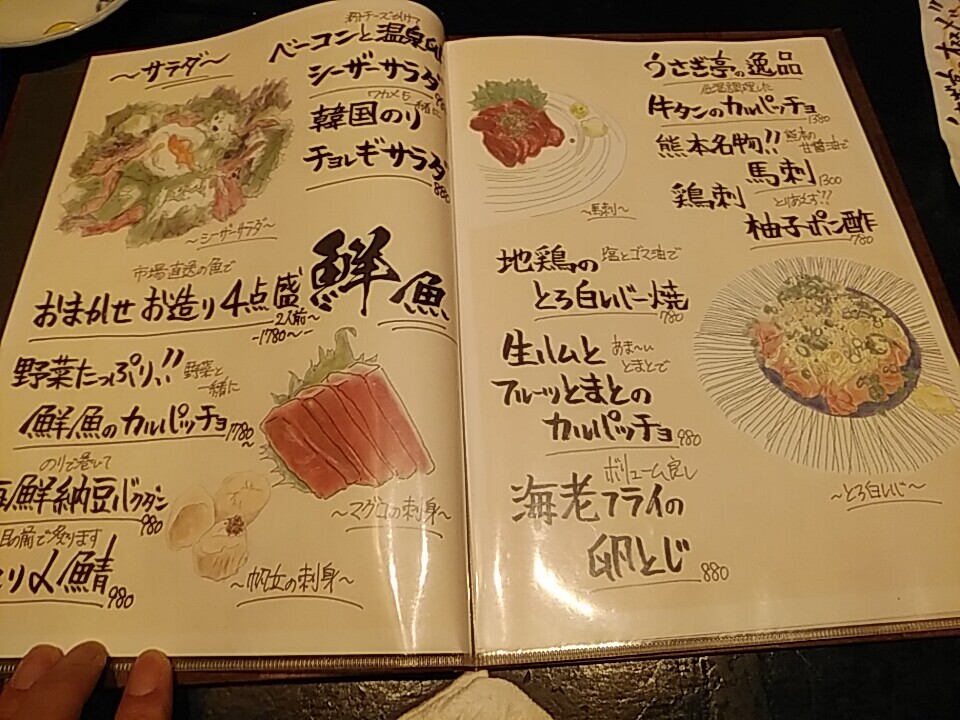 ～サラダ～
粉チーズかけて
ベーコンと温泉
シーザーサラダ
ワカメも一緒に
韓国のり
チョレギサラダ
880
～シーザーサラダ～
市場直送の魚で
鮮魚
おまかせお造り4点盛
2人前～
-1780～-
野菜たっぷりぃ!!
野菜と一緒に
鮮魚のカルパッチョ
1780～
のりで巻いて
鮮納豆バクダン
980
目の前で炙ります
〆鯖
980
～マグロの刺身～
～帆立の刺身～
うさぎ亭の逸品
低温調理した
牛タンのカルパッチョ
1380
熊本名物!!
熊本の甘醤油で
馬刺
1300
鶏刺
とりあえず!!
柚子ポン酢
780
～馬刺～
地鶏の
塩とゴマ油で
とろ白いじー焼
780
生ハムと
あま～いとまとで
フルーツとまとの
カルパッチョ
980
ボリューム良し
海老フライの
卵とじ
880
～とろ白いじ～